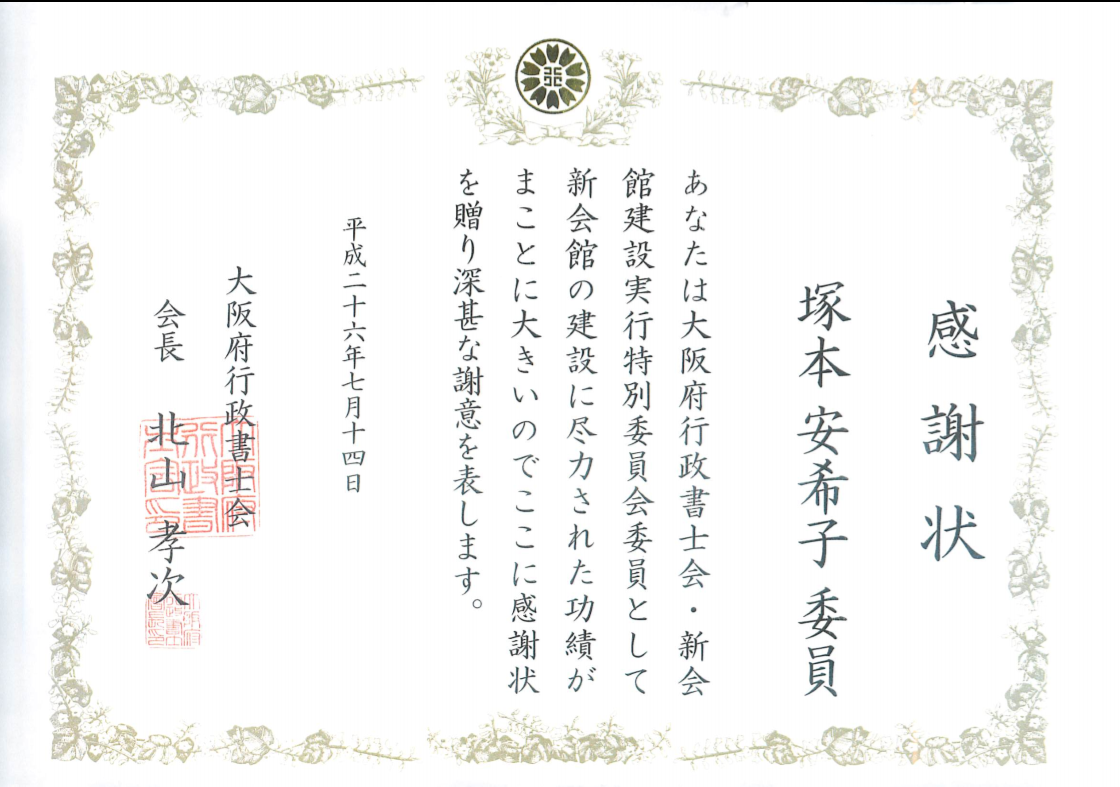 感謝状
塚本 安希子 委員
あなたは大阪府行政書士会・新会
館建設実行特別委員会委員として
新会館の建設に尽力された功績が
まことに大きいのでここに感謝状
を贈り深甚な謝意を表します。
平成二十六年七月十四日
大阪府行政書士会
会長 北山 孝次